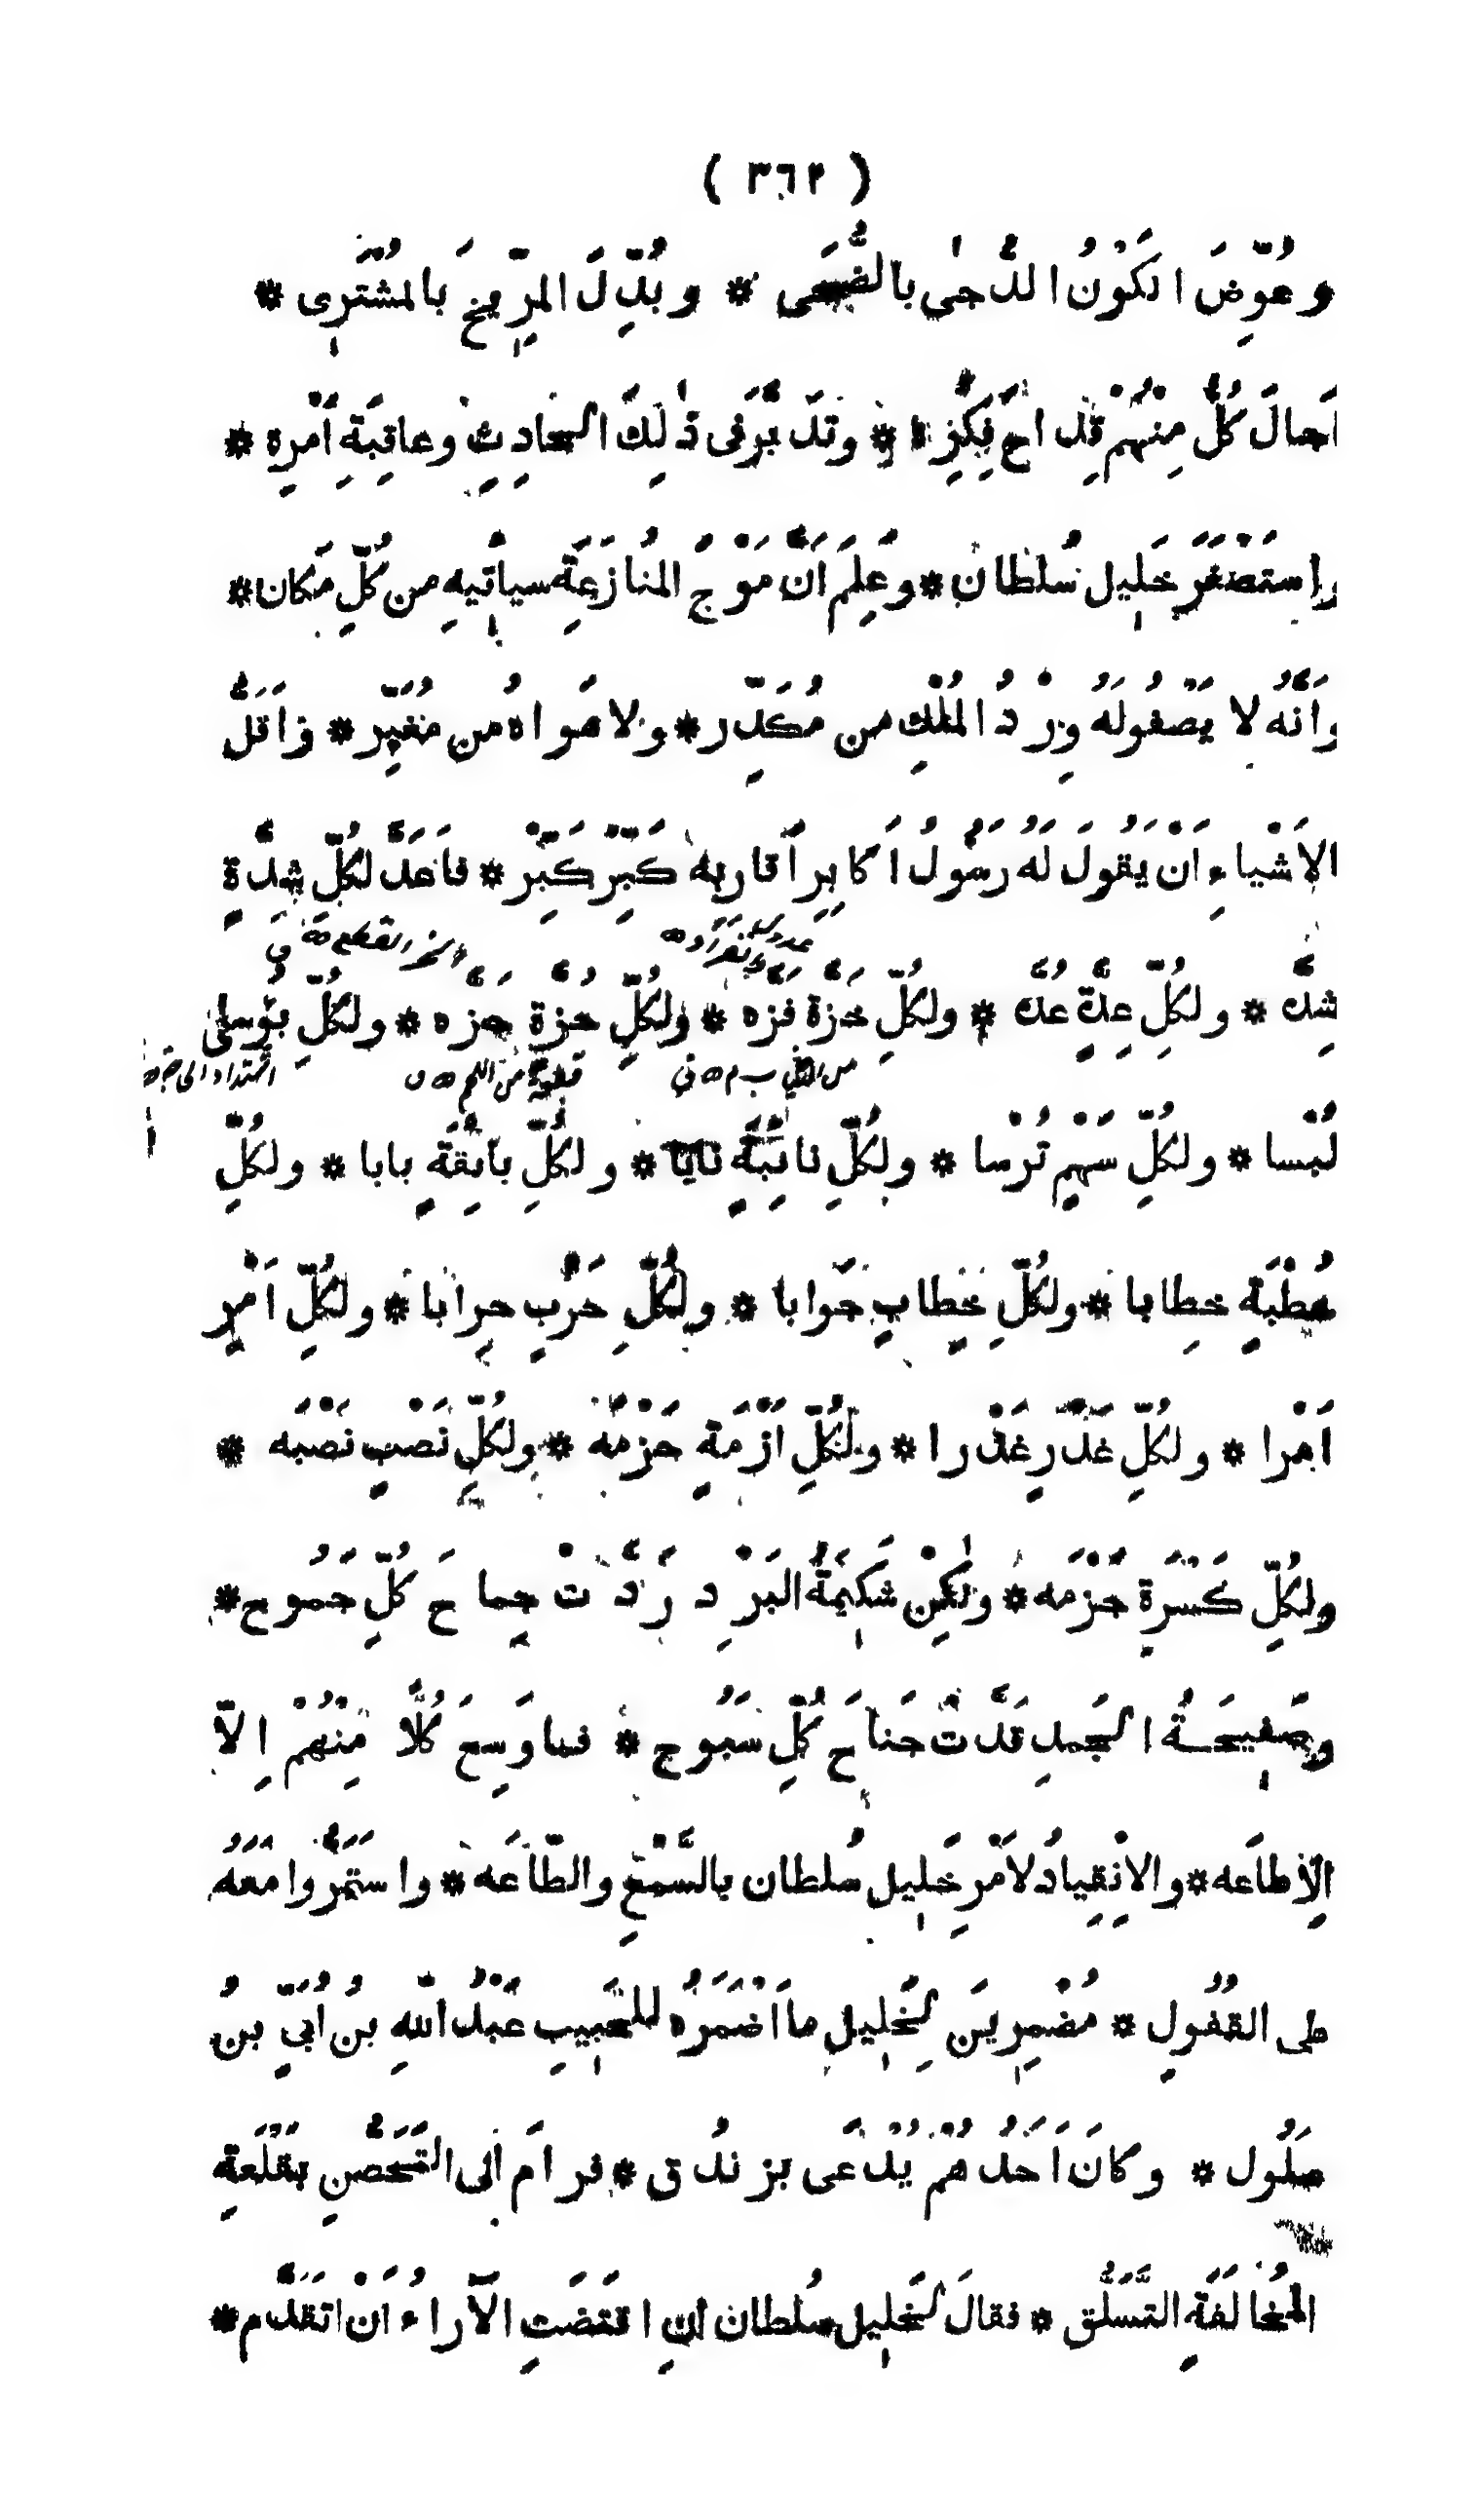 ( ٣٦٣ )
وعُوِّضَ الكَوْنُ الدُّجٰى بالضُّحَى * وبُدِّلَ المِرِّيخُ بَالمُشْتَرِى *
اَجالَ كُلٌّ مِنْهُمْ قِداحَ فِكْرِه * وتَدَبَّرَفى ذٰلِكَ الحادِثِ وعاقِبَةِ اَمْرِه *
واستَصْغَرَ خَلِيل سُلطان * وعَلِمَ اَنَّ مَوْجَ المُنازَعَةِ سياتِيهِ من كُلِّ مَكان *
وَاَنَّهُ لا يَصْفُولَهُ وِرْدُ المُلْكِ من مُكَدِّر * ولا هَواهُ من مُغَيِّر * واَقَلُّ
الاَشْياءِ اَنْ يَقُولَ لَهُ رَسُولُ اَكابِرِ اَقاربِهٖ كَبِّرْ كَبِّرْ * فاَعَدَّ لكُلِّ شِدَّةٍ
شِدَّه * ولكُلِّ عِدَّةٍ عُدَّه * ولكُلِّ حَزَّة فَزَّه * ولكُلِّ حُزَّةٍ جَزَّه * ولكُلِّ بُؤسٰى
لُبْسا * ولكُلِّ سَهْمٍ تُرْسا * ولكُلِّ نائِبَةٍ نابا * ولكُلِّ بائِقَةٍ بابا * ولكُلِّ
خُطْبَةٍ خِطابا * ولكُلِّ خِطابٍ جَوابا * ولكُلِّ حَرْبٍ حِرابا * ولكُلِّ اَمْرٍ
اَمْرا * ولكُلِّ غَدْرٍ غَدْرا * ولكُلِّ اَزْمَةٍ حَزْمَه * ولكُلِّ نَصْبٍ نَصْبَه *
ولكُلِّ كَسْرَةٍ جَزْمَه * ولٰكِنْ شَكِيمَةُ البَرْدِ رَدَّتْ جِماحَ كُلِّ جَمُوح *
وصَفِيحَةُ الجَمدِ قَدَّتْ جَناحَ كُلِّ سَبُوح * فما وَسِعَ كُلًّا مِنْهُمْ اِلاّ
الاِطاعَه * والاِنْقِيادُ لاَمْرِ خَلِيل سُلطان بالسَّمْعِ والطّاعَه * واستَمَرُّوا مَعَهُ
على القُفُولِ * مُضْمِرِينَ لِخَلِيلِ ما اَضْمَرَهُ للحَبِيبِ عَبْدُ اللّٰهِ بنُ اُبَيِّ بنُ
سَلُول * وكانَ اَحَدُهُمْ يُدْعَى بزندُق * فرامَ اِلى التَّحَصُّنِ بقَلْعَةِ
المُخالَفَةِ التَّسَلُّق * فقالَ لخَلِيل سُلطان اِنِ اقتَضَتِ الآراءُ اَنْ اتقَدَّم *